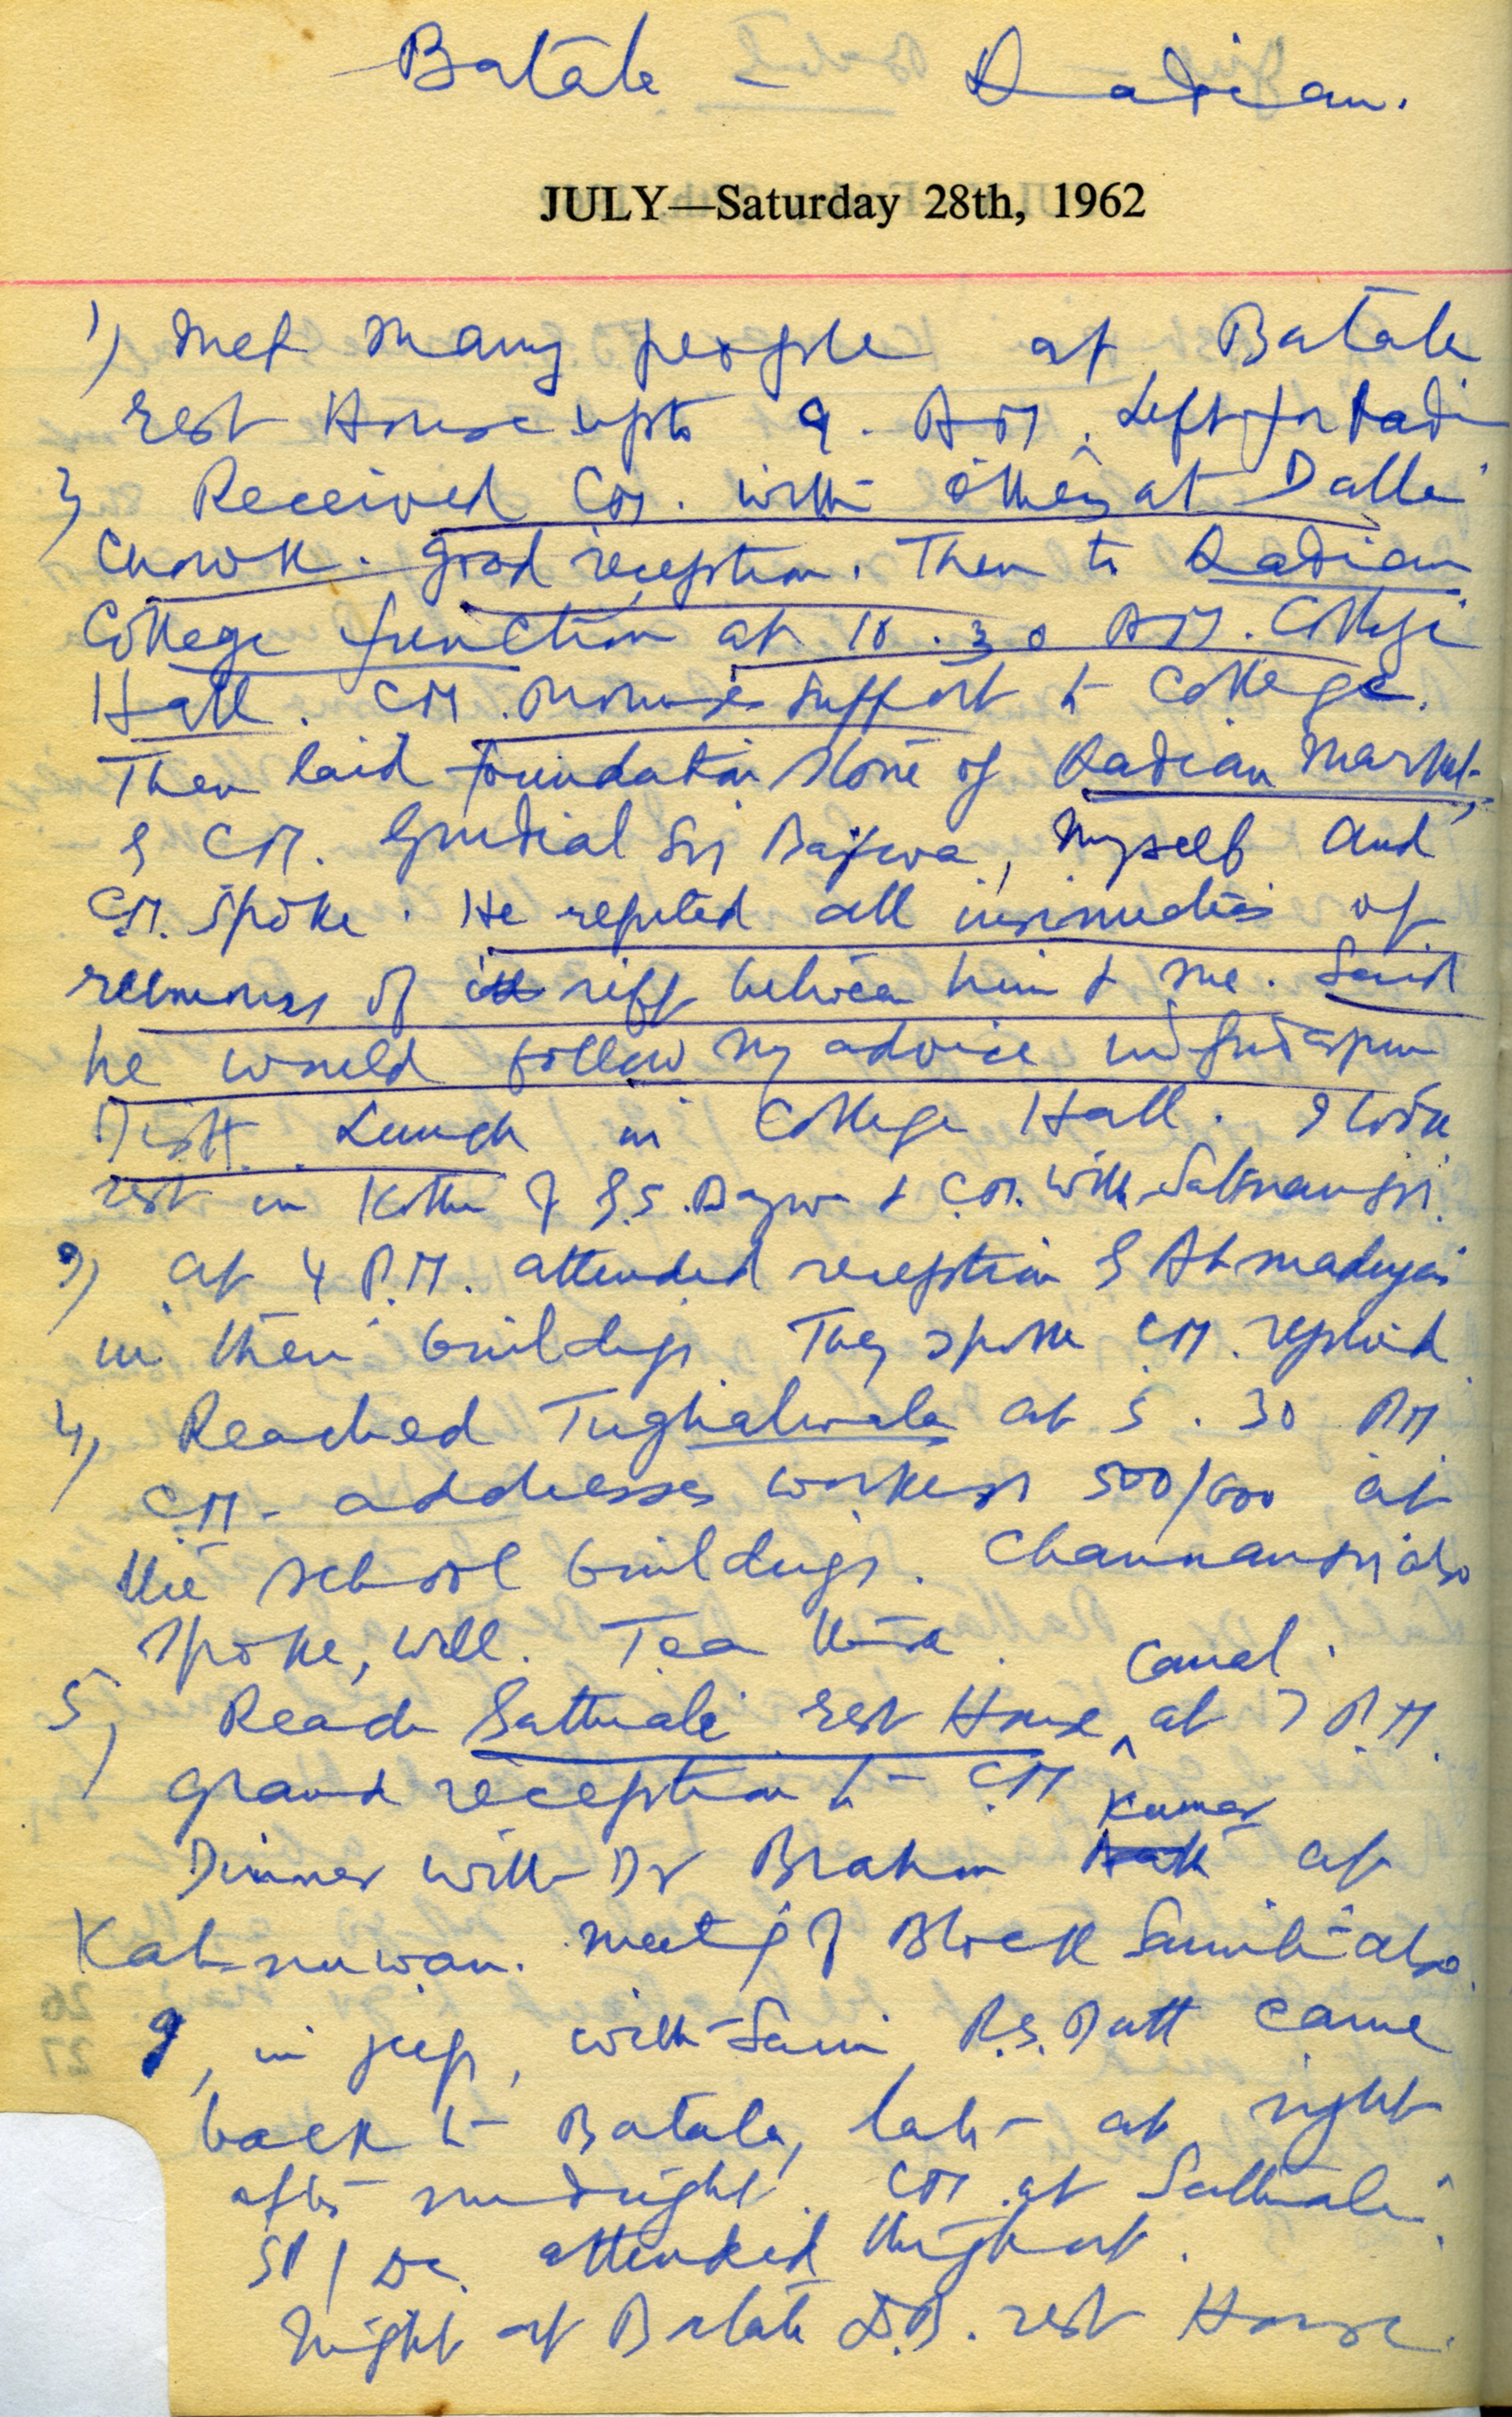 Batala - Qadian.
JULY—Saturday 28th, 1962
1) Met many people at Batala
rest House upto 9. AM. Left for Qadi
2) Received CM. with others at Dalla
Chowk. Good reception. Then to Qadian
College function at 10.30 AM. College
Hall. CM. promises support to College.
Then laid foundation stone of Qadian Market
by CM. Gurdial Singh Bajwa, myself and
CM. spoke. He refuted all insinuations of
rumours of riff between him & me. Said
he would follow my advice in Gurdaspur
Distt. Lunch in College Hall. I took
rest in Kothi of G.S. Bajwa & C.M. with Satnam Singh.
3) at 4 P.M. attended reception by Ahmadiyas
in their buildings They spoke CM. replied
4) Reached Tughalwala at 5.30 PM
CM - addresses workers 500/600 at
the school buildings. Channan Singh also
spoke, well. Tea there.
5) Reach Sathiali rest House canal at 7 P.M.
grand reception to CM
Dinner with Dr Brahm Kumar at
Kahnuwan. meeting of Block Samiti also.
I, in jeep, with Saini R.S. Dutt came
back to Batala, late at night
after midnight. CM at Sathiali.
SP/DC. attended throughout.
Night at Batala D.B. rest House.